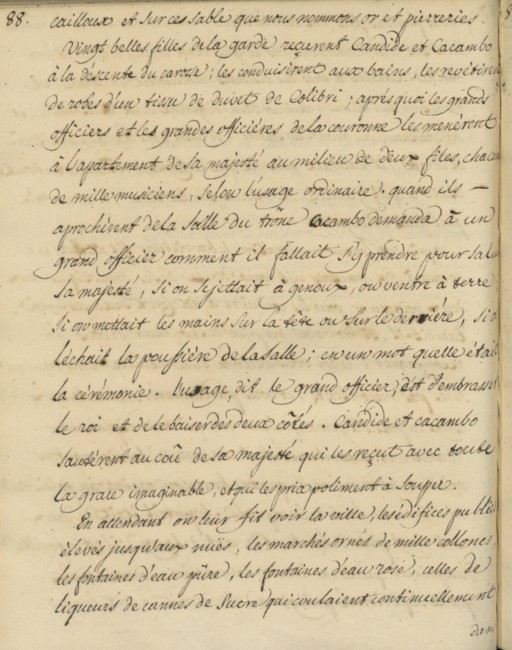 88.
cailloux et sur ces sable que nous nommons or et pierreries.
Vingt belles filles de la garde reçurent Candide et Cacambo
à la descente du carosse; les conduisirent aux bains, les revêtirent
de robes d'un tissu de duvet de Colibri; aprés quoi les grands
officiers et les grandes officiéres de la couronne les menérent
à l'apartement de sa majesté au milieu de deux files, chacune
de mille musiciens, selon l'usage ordinaire. quand ils —
aprochérent de la Salle du trône Cacambo demanda à un
grand officier comment il fallait s'y prendre pour saluer
sa majesté, si on se jettait à genoux, ou ventre à terre
si on mettait les mains sur la tête ou sur le derriére, si on
léchait la poussiére de la Salle; en un mot quelle était
la cérémonie. l'usage, dit le grand officier, est d'embrasser
le roi et de le baiser des deux côtés. Candide et cacambo
sautérent au coû de sa majesté qui les reçut avec toute
la grace imaginable, et qui les pria poliment à Souper.
En attendant on leur fit voir la ville, les édifices publics
élevés jusqu'aux nuës, les marchés ornés de mille collones,
les fontaines d'eau pûre, les fontaines d'eau rose, celles de
liqueurs de cannes de Sucre qui coulaient continuellement
dans